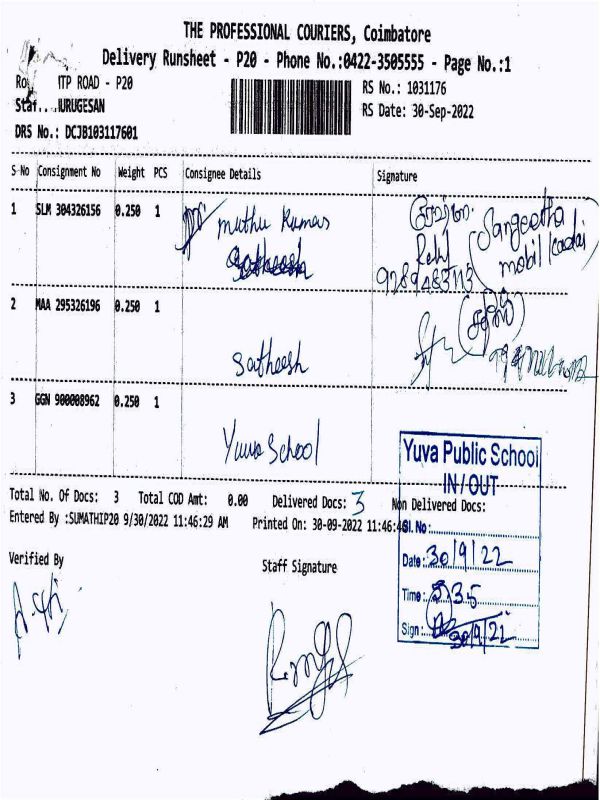 THE PROFESSIONAL COURIERS, Coimbatore
Delivery Runsheet - P20 - Phone No.:0422-3505555 - Page No.:1
TP ROAD - P20
RS No.: 1031176
URUGESAN
RS Date: 30-Sep-2022
DRS No.: DCJB103117601
S No Consignment No Weight PCS Consignee Details Signature
1 SLM 304326156 0.250 1 Muthu Kumar
Sangeetha
mobil kadai
2 MAA 295326196 0.250 1
Satheesh
3 GGN 900008962 0.250 1
Yuva School
Yuva Public School
IN/OUT
Total No. Of Docs: 3 Total COD Amt: 0.00 Delivered Docs: 3 Non Delivered Docs:
Entered By :SUMATHIP20 9/30/2022 11:46:29 AM Printed On: 30-09-2022 11:46:46
Sl. No:
Date: 30/9/22
Time: 35
Sign: 30/9/22
Verified By
Staff Signature